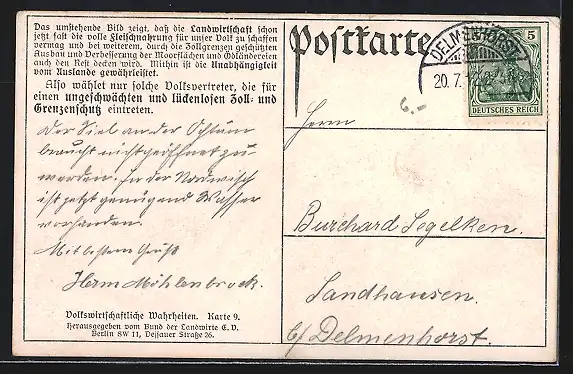 Das umstehende Bild zeigt, daß die Landwirtschaft schon
jetzt fast die volle Fleischnahrung für unser Volk zu schaffen
vermag und bei weiterem, durch die Zollgrenzen geschützten
Ausbau und Verbesserung der Moorflächen und Ödländereien
auch den Rest decken wird. Mithin ist die Unabhängigkeit
vom Auslande gewährleistet.
Also wählet nur solche Volksvertreter, die für
einen ungeschwächten und lückenlosen Zoll- und
Grenzenschutz eintreten.
Der Siel an der Ochtum
braucht nicht geöffnet zu
werden. In der Nordwisch
ist jetzt genügend Wasser
vorhanden.
Mit bestem Gruß
Herm Möhlenbrock.
Volkswirtschaftliche Wahrheiten. Karte 9.
Herausgegeben vom Bund der Landwirte E. V.
Berlin SW 11, Dessauer Straße 26.
Postkarte
DELMENHORST
20. 7.
5
DEUTSCHES REICH
6.-
Herrn
Burchard Segelken.
Sandhausen.
b/ Delmenhorst.